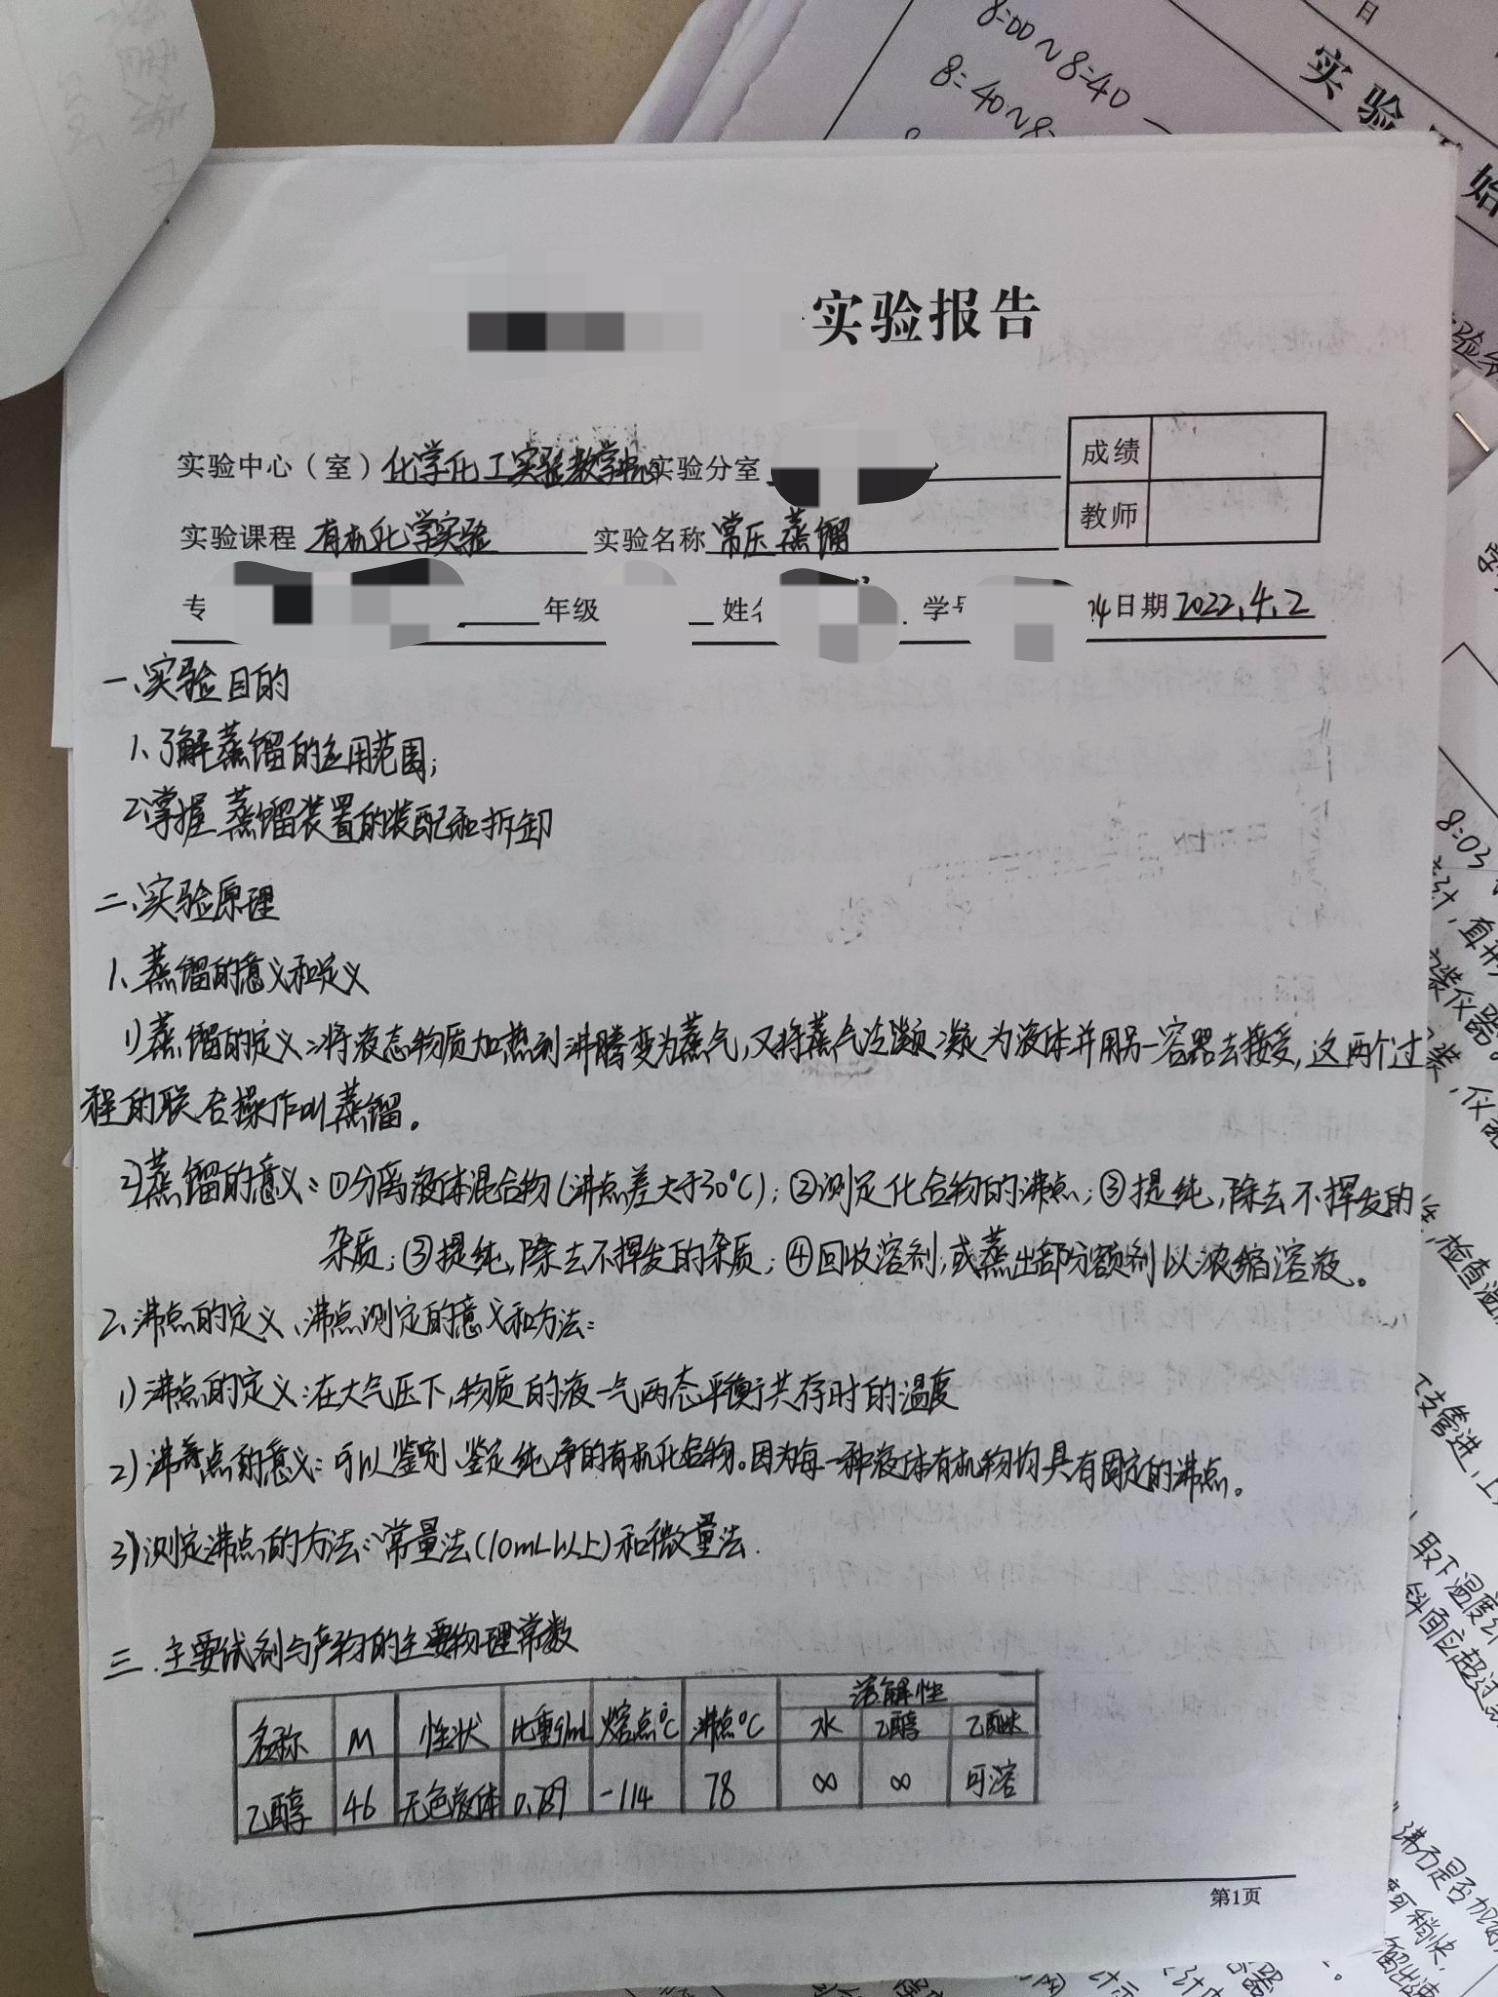 8:00~8:40
8:40~8:
日
实验
始
实验报告
实验中心（室）化学化工实验教学中心实验分室
成绩
实验课程 有机化学实验 实验名称 常压蒸馏
教师
年级 姓名 学号 24日期 2022.4.2
一、实验目的
1、了解蒸馏的应用范围；
2、掌握蒸馏装置的装配和拆卸
二、实验原理
1、蒸馏的意义和定义
1)蒸馏的定义：将液态物质加热到沸腾变为蒸气，又将蒸气冷凝凝为液体并用另一容器去接受，这两个过
程的联合操作叫蒸馏。
2)蒸馏的意义：①分离液体混合物（沸点差大于30℃）；②测定化合物的沸点；③提纯，除去不挥发的
杂质；③提纯，除去不挥发的杂质；④回收溶剂，或蒸出部分额剂以浓缩溶液。
2、沸点的定义、沸点测定的意义和方法：
1)沸点的定义：在大气压下，物质的液-气两态平衡共存时的温度
2)沸点的意义：可以鉴别、鉴定纯净的有机化合物。因为每一种液体有机物均具有固定的沸点。
3)测定沸点的方法：常量法（10mL以上）和微量法.
三.主要试剂与产物的主要物理常数
溶解性
名称 M 性状 比重g/mL 熔点℃ 沸点℃ 水 乙醇 乙醚
乙醇 46 无色液体 0.789 -114 78 ∞ ∞ 可溶
第1页
8:03
装仪器。
检查
支管进，上
取下温度计
斜面应超过
沸石是否加
可稍快，
馏出速